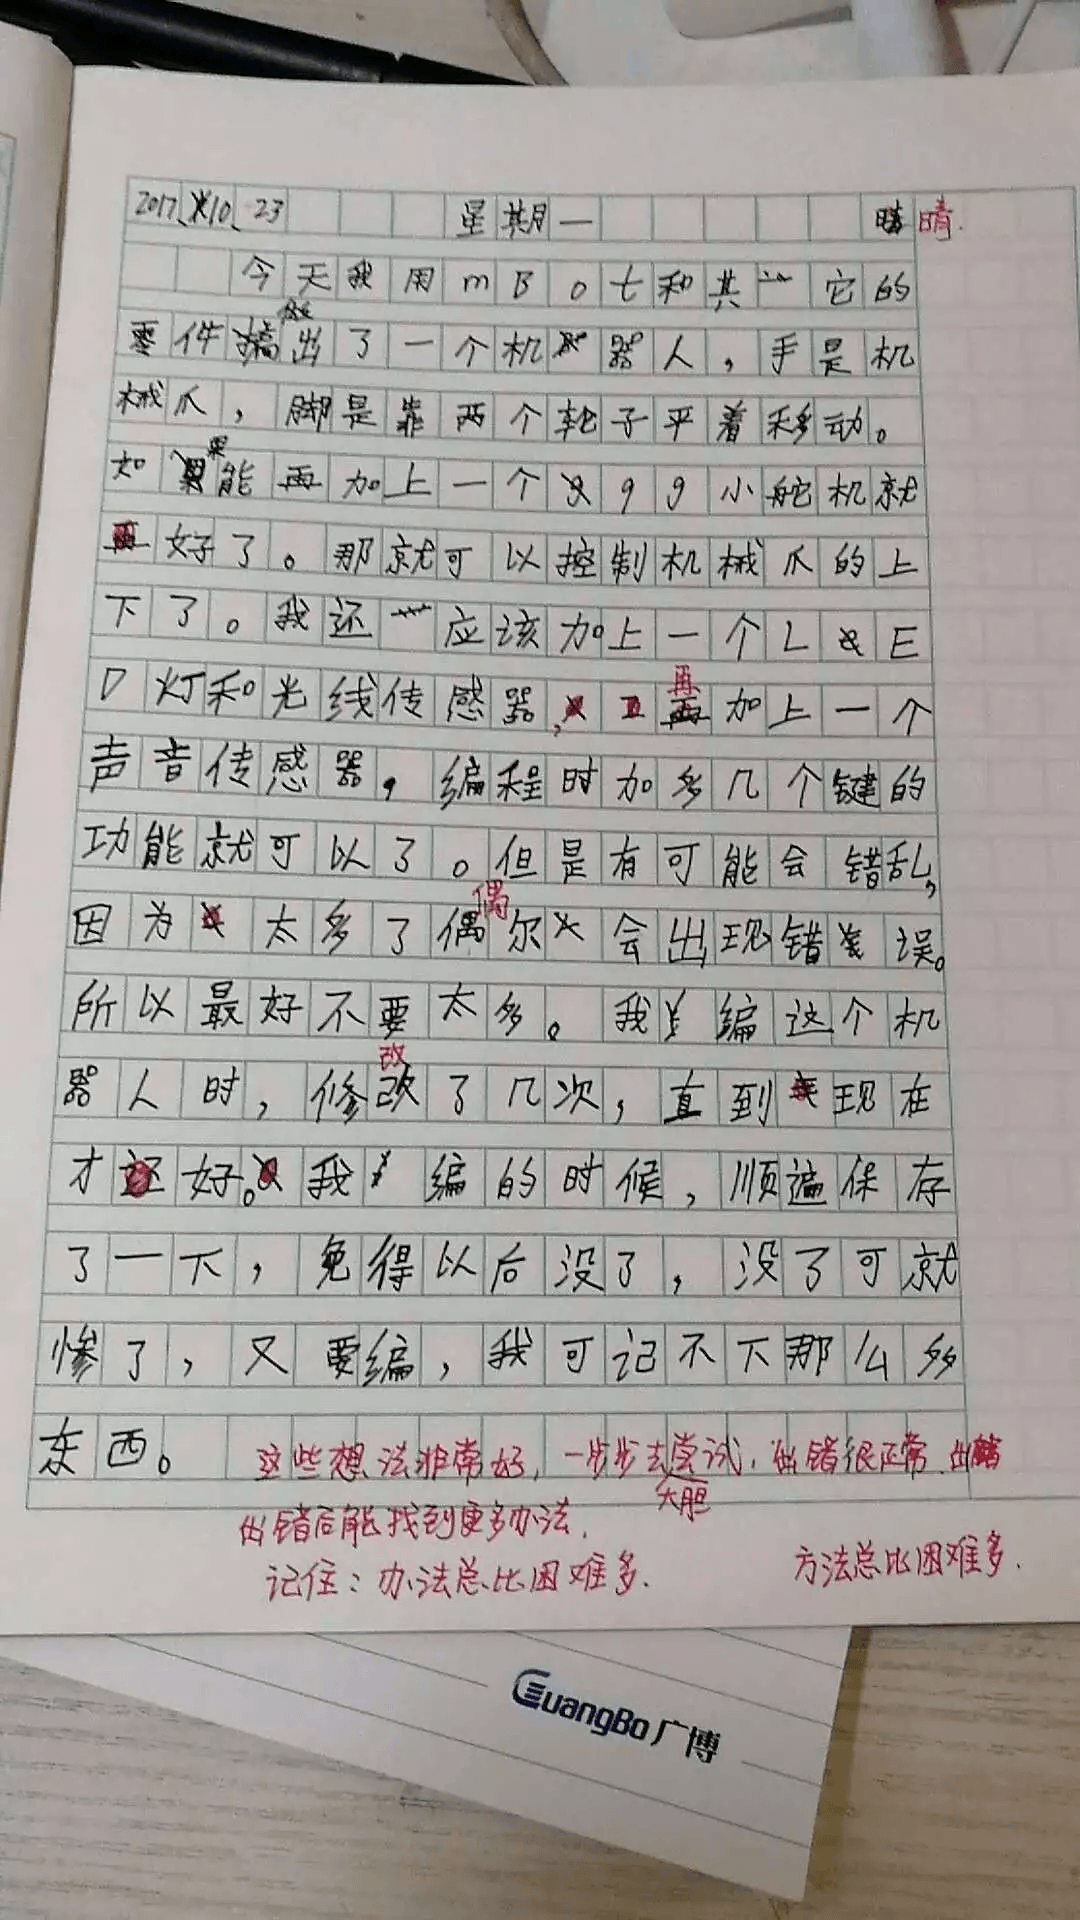 2017、10、23 星期一 晴
今天我用mBot和其它的
零件搞出了一个机器人，手是机
械爪，脚是靠两个轮子平着移动。
如果能再加上一个9g小舵机就
好了。那就可以控制机械爪的上
下了。我还应该加上一个LE
D灯和光线传感器，再加上一个
声音传感器，编程时加多几个键的
功能就可以了。但是有可能会错乱，
因为太多了偶尔会出现错误。
所以最好不要太多。我编这个机
器人时，修改了几次，直到现在
才好。我编的时候，顺遍保存
了一下，免得以后没了，没了可就
惨了，又要编，我可记不下那么多
东西。
这些想法非常好，一步步去大胆尝试，出错很正常，
出错后能找到更多办法，
记住：办法总比困难多.
方法总比困难多.
GuangBo 广博